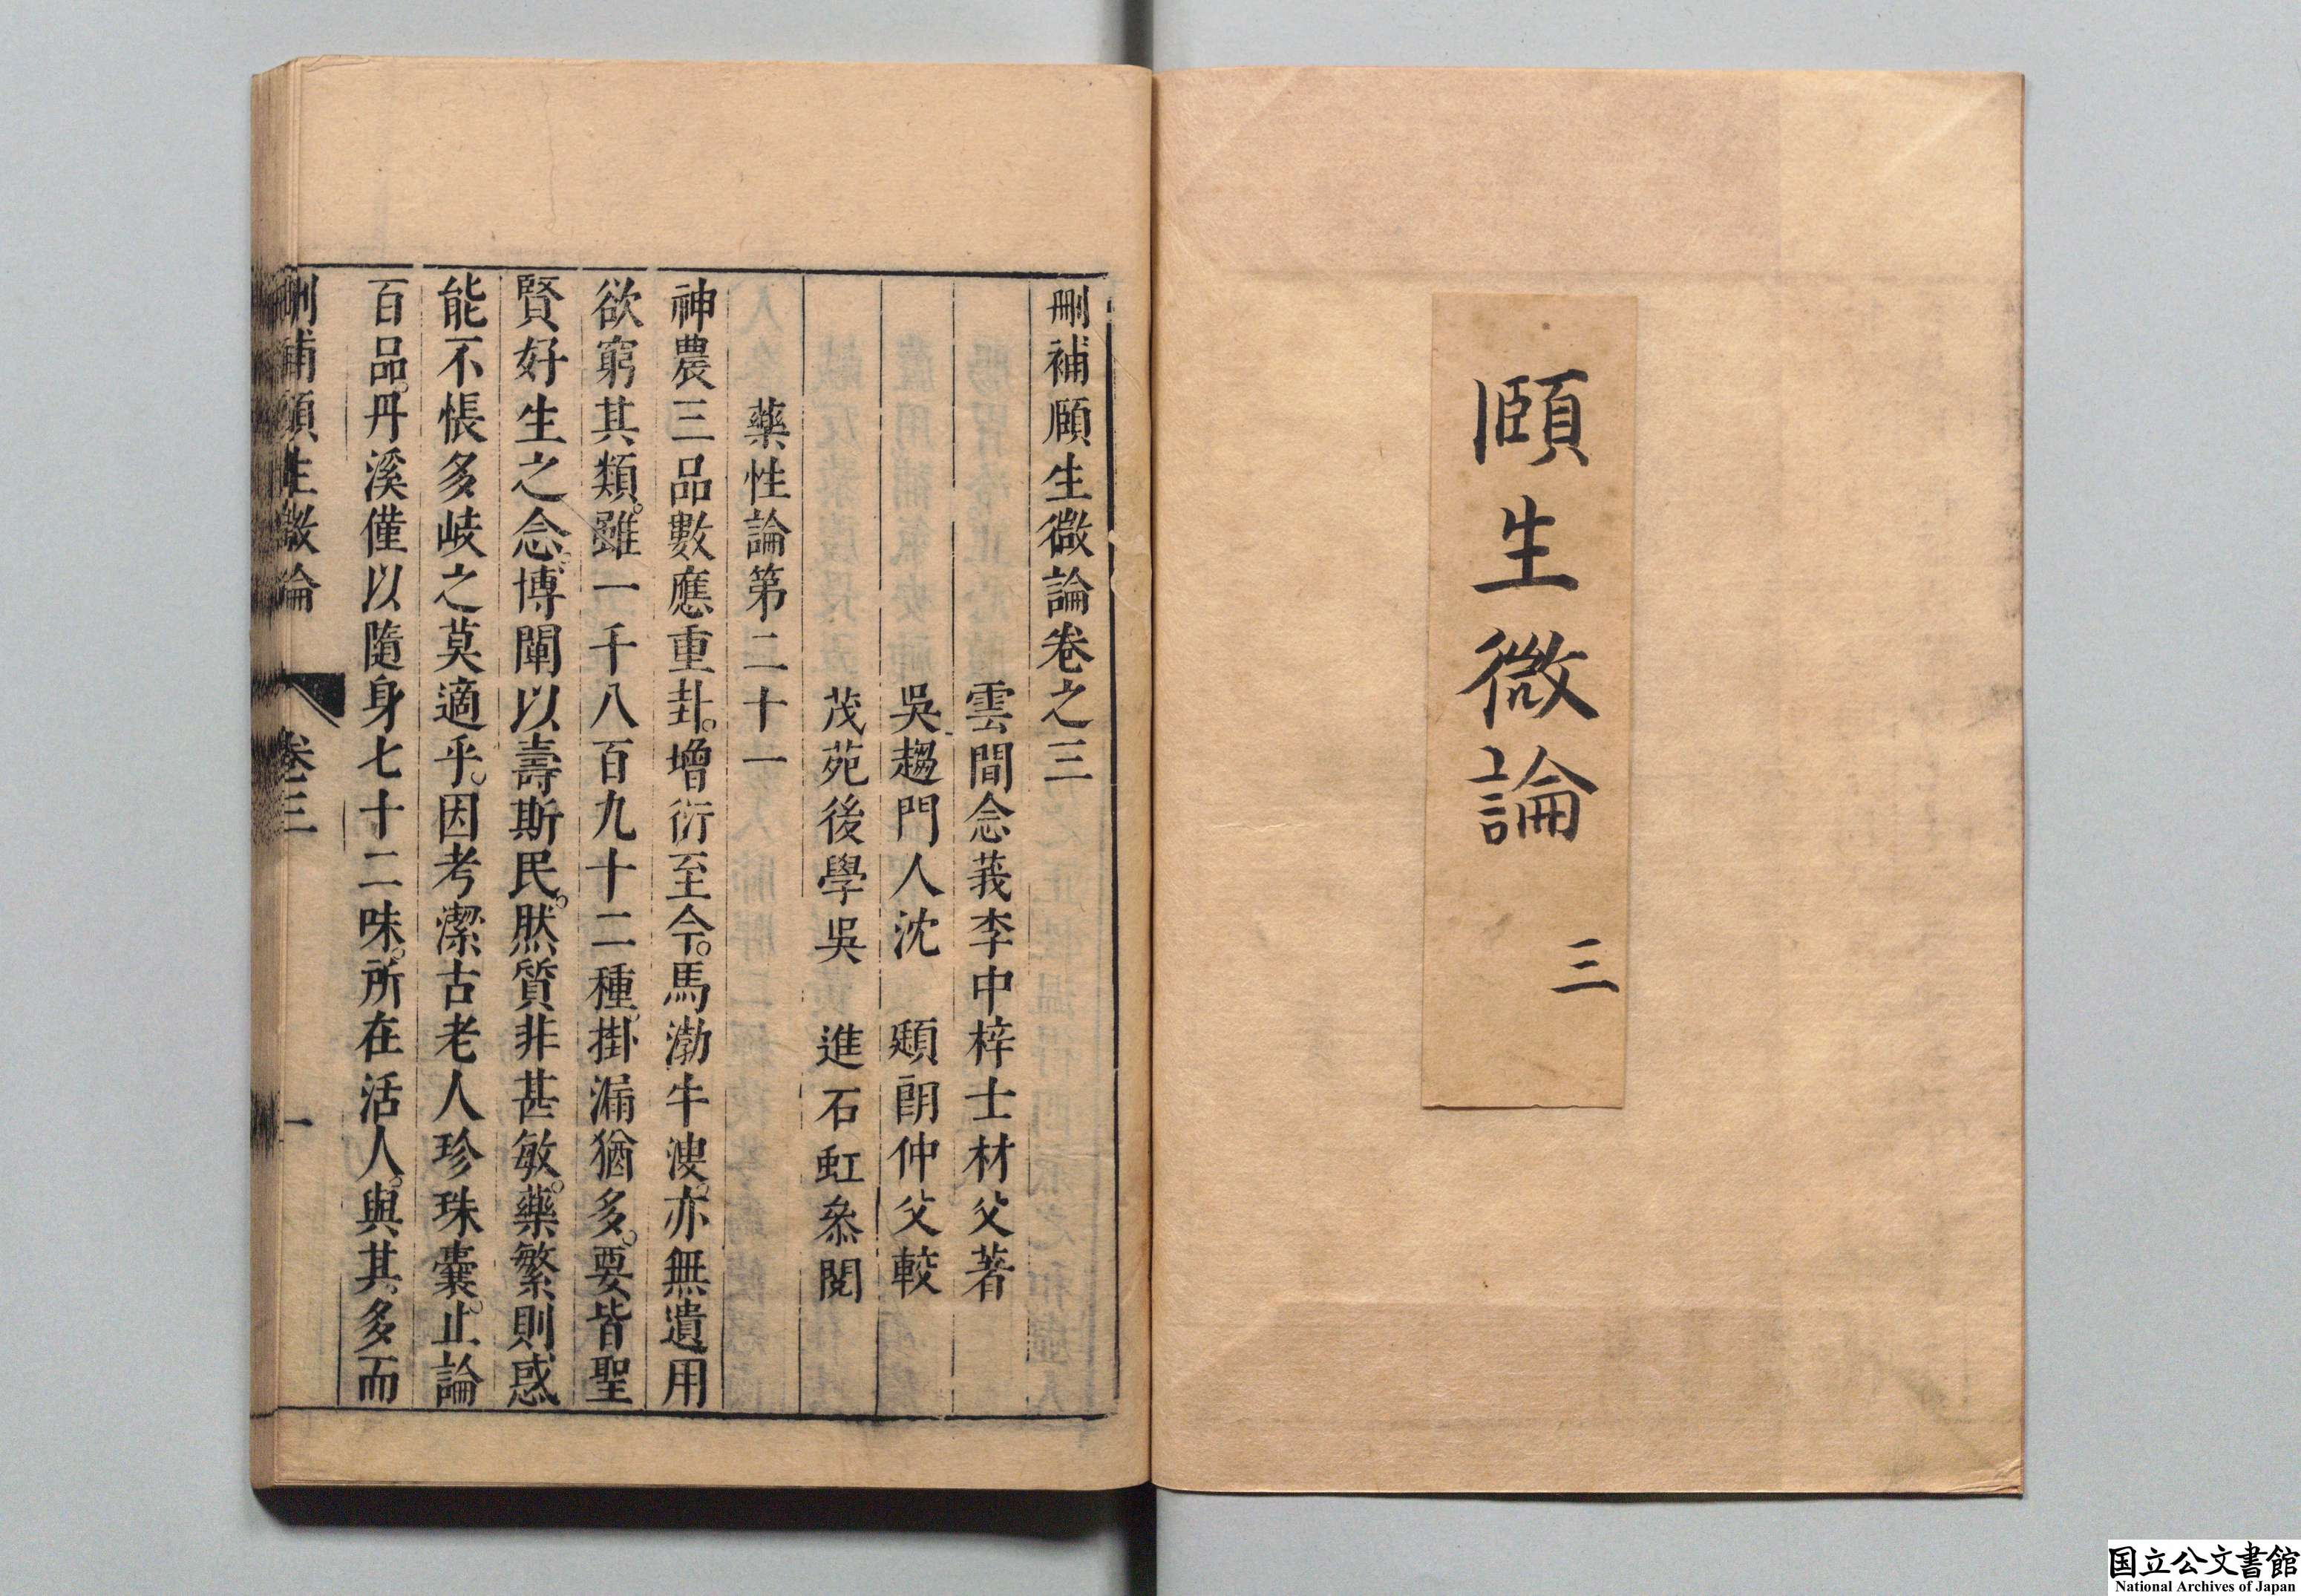 頤生微論
三
刪補頤生微論卷之三
雲間念莪李中梓士材父著
吳趨門人沈　頲朗仲父較
茂苑後學吳　進石虹叅閱
藥性論第二十一
神農三品數應重卦。增衍至今。馬渤牛溲。亦無遺用
欲窮其類。雖一千八百九十二種。掛漏猶多。要皆聖
賢好生之念。博闡以壽斯民。然質非甚敏。藥繁則惑
能不悵多岐之莫適乎。因考潔古老人珍珠囊。止論
百品。丹溪僅以隨身七十二味。所在活人。與其多而
刪補頤生微論
卷三
一
国立公文書館
National Archives of Japan